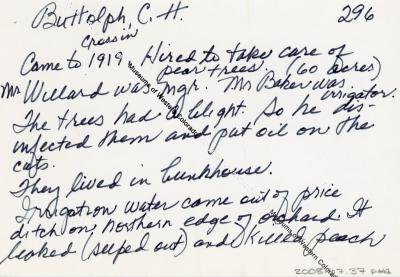 Buttolph, C. H. 296
Crossin
Came to 1919 Hired to take care of
pear trees. (60 acres)
Mr Willard was mgr. Mr Baker was irrigator.
The trees had a blight. So he dis-
infected them and put oil on the
cuts.
They lived in bunkhouse.
Irrigation water came out of price
ditch on, northern edge of orchard. It
leaked (seeped out) and killed peach
Museums of Western Colorado